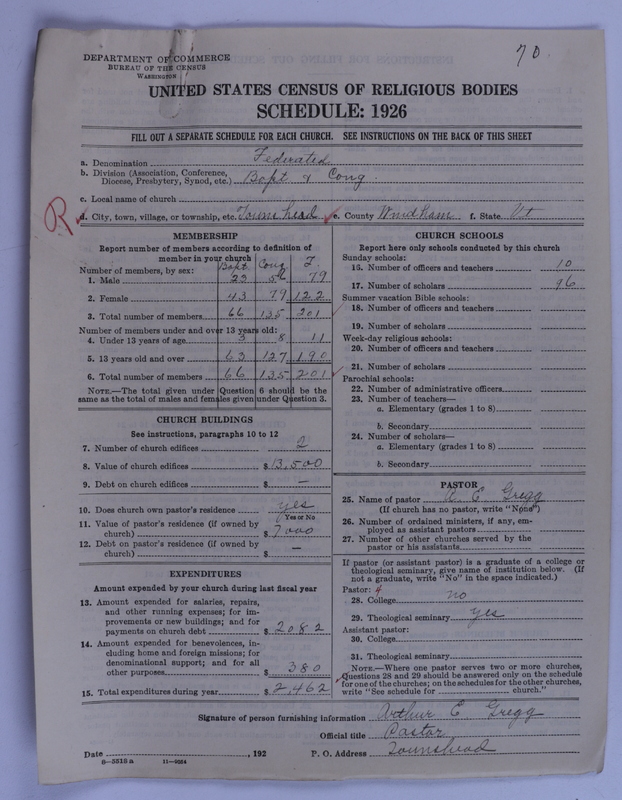 70.
DEPARTMENT OF COMMERCE
BUREAU OF THE CENSUS
WASHINGTON
UNITED STATES CENSUS OF RELIGIOUS BODIES
SCHEDULE: 1926
FILL OUT A SEPARATE SCHEDULE FOR EACH CHURCH. SEE INSTRUCTIONS ON THE BACK OF THIS SHEET
a. Denomination Federated
b. Division (Association, Conference, Diocese, Presbytery, Synod, etc.) Bapt & Cong.
c. Local name of church
R d. City, town, village, or township, etc. Townshead e. County Windham f. State Vt
MEMBERSHIP
Report number of members according to definition of member in your church
Number of members, by sex: Bapt. Cong T.
1. Male 23 56 79
2. Female 43 79 122
3. Total number of members 66 135 201
Number of members under and over 13 years old:
4. Under 13 years of age 3 8 11
5. 13 years old and over 63 127 190
6. Total number of members 66 135 201
NOTE.—The total given under Question 6 should be the same as the total of males and females given under Question 3.
CHURCH BUILDINGS
See instructions, paragraphs 10 to 12
7. Number of church edifices 2
8. Value of church edifices $ 13,500
9. Debt on church edifices $ —
10. Does church own pastor's residence yes
Yes or No
11. Value of pastor's residence (if owned by church) $ 7000
12. Debt on pastor's residence (if owned by church) $ —
EXPENDITURES
Amount expended by your church during last fiscal year
13. Amount expended for salaries, repairs, and other running expenses; for improvements or new buildings; and for payments on church debt $ 2082
14. Amount expended for benevolences, including home and foreign missions; for denominational support; and for all other purposes $ 380
15. Total expenditures during year $ 2,462
CHURCH SCHOOLS
Report here only schools conducted by this church
Sunday schools:
16. Number of officers and teachers 10
17. Number of scholars 96
Summer vacation Bible schools:
18. Number of officers and teachers
19. Number of scholars
Week-day religious schools:
20. Number of officers and teachers
21. Number of scholars
Parochial schools:
22. Number of administrative officers
23. Number of teachers—
a. Elementary (grades 1 to 8)
b. Secondary
24. Number of scholars—
a. Elementary (grades 1 to 8)
b. Secondary
PASTOR
25. Name of pastor A. E. Gregg
(If church has no pastor, write "None")
26. Number of ordained ministers, if any, employed as assistant pastors
27. Number of other churches served by the pastor or his assistants
If pastor (or assistant pastor) is a graduate of a college or theological seminary, give name of institution below. (If not a graduate, write "No" in the space indicated.)
Pastor: 4
28. College no
29. Theological seminary yes
Assistant pastor:
30. College
31. Theological seminary
NOTE.—Where one pastor serves two or more churches, Questions 28 and 29 should be answered only on the schedule for one of the churches; on the schedules for the other churches, write "See schedule for church."
Signature of person furnishing information Arthur E Gregg
Official title Pastor
Date , 192 P. O. Address Townshead
8—5518 a 11—9264